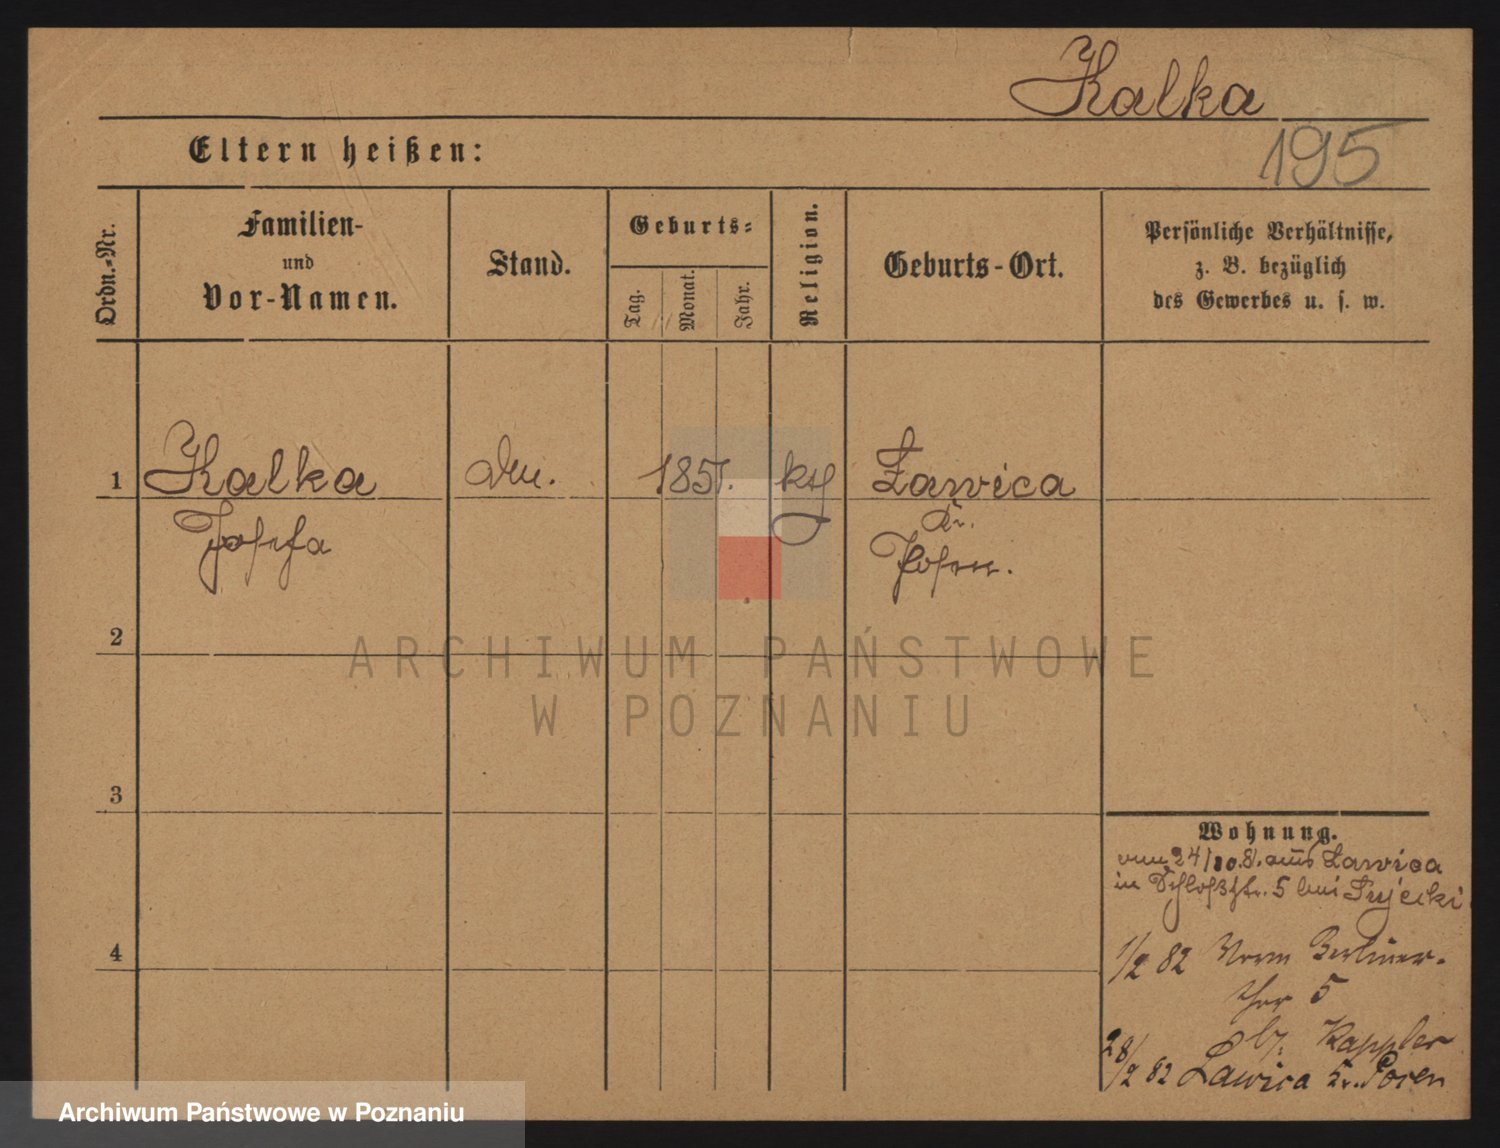 Kalka
195
Eltern heißen:
Ordn.-Nr.
Familien-
und
Vor-Namen.
Stand.
Geburts-
Tag.
Monat.
Jahr.
Religion.
Geburts-Ort.
Persönliche Verhältnisse,
z. B. bezüglich
des Gewerbes u. s. w.
1
Kalka
1851.
kth
Ławica
Josefa
Kr.
Posen.
2
ARCHIWUM PAŃSTWOWE
W POZNANIU
3
Wohnung.
24/10.81. aus Lawica
in Schloßstr. 5 bei
4
1/2 82 Vorm Berliner-
thor 5
b. Kappler
28/2 82 Lawica Kr. Posen
Archiwum Państwowe w Poznaniu